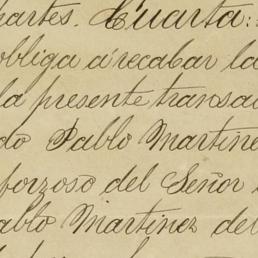 partes. Cuarta:
obliga á recabar la
la presente transac
do Pablo Martine
forzoso del Señor
ablo Martinez del